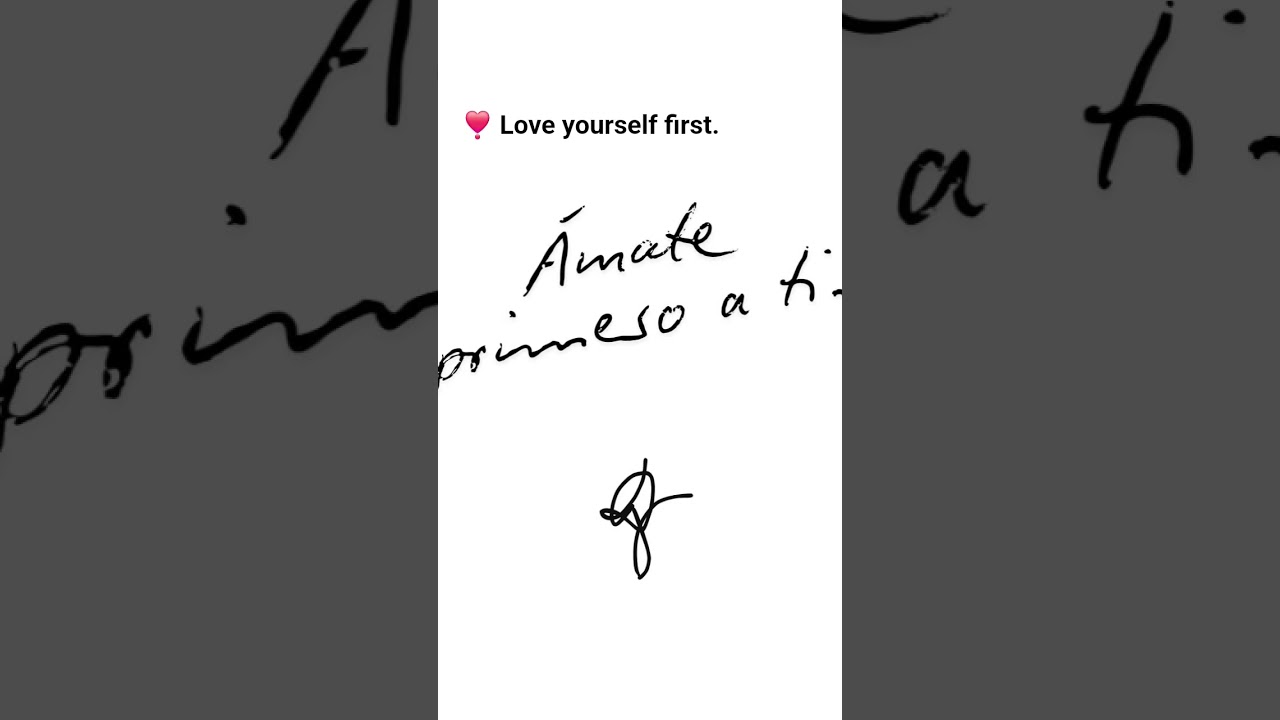 ❣️ Love yourself first.
Ámate
primero a ti.